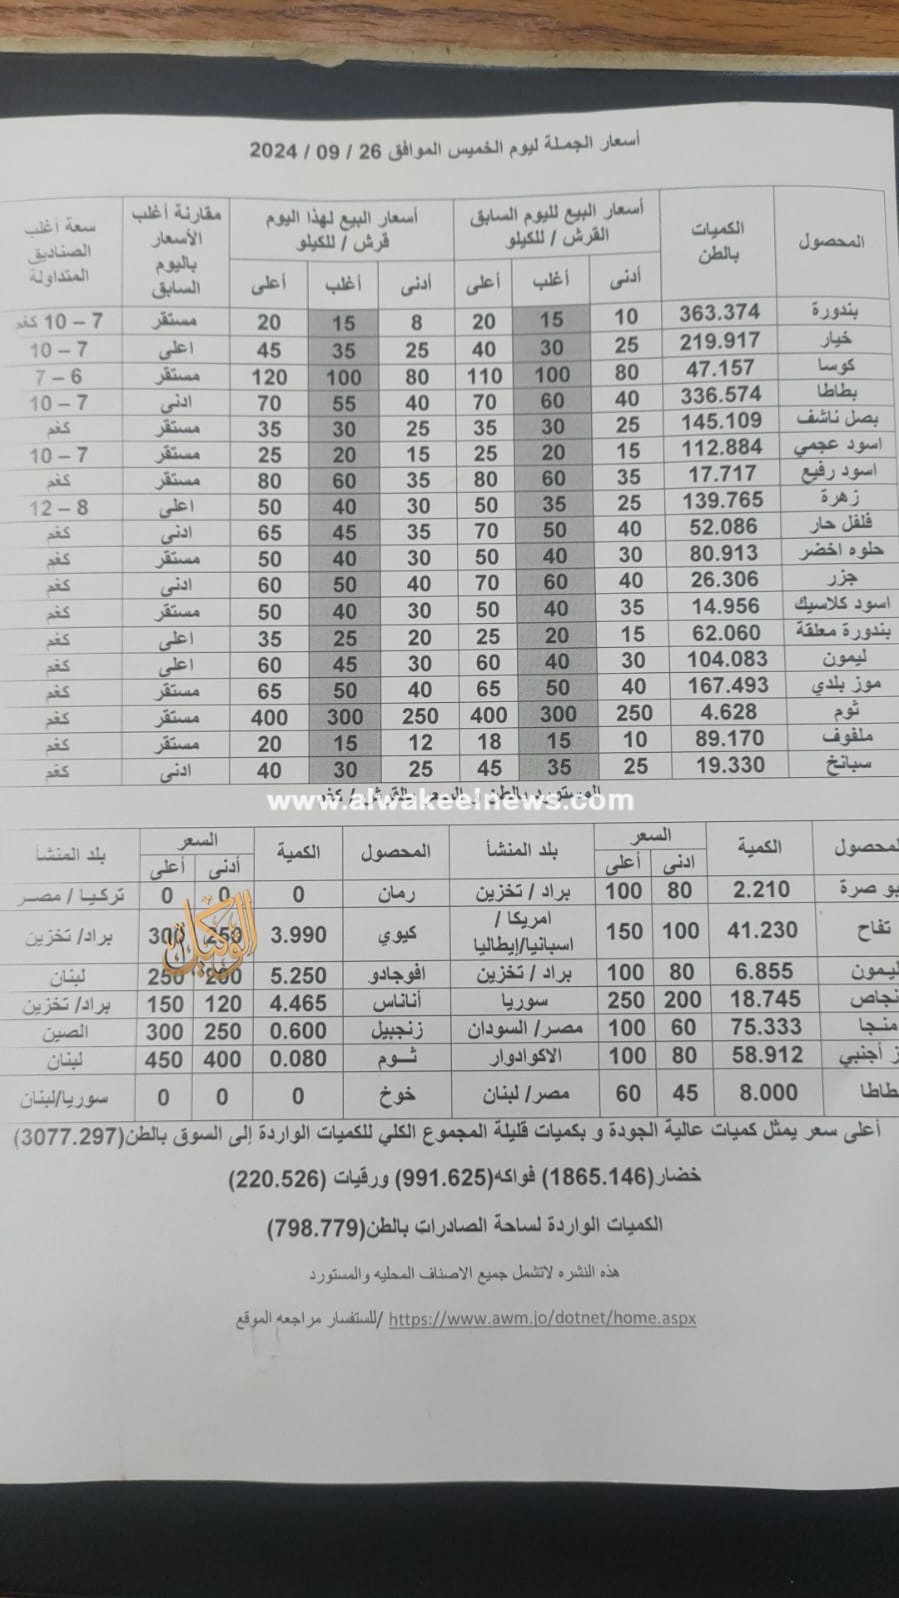 أسعار الجملة ليوم الخميس الموافق 26 / 09 / 2024
المحصول الكميات بالطن أسعار البيع لليوم السابق القرش / للكيلو أسعار البيع لهذا اليوم قرش / للكيلو مقارنة أغلب الأسعار باليوم السابق سعة أغلب الصناديق المتداولة
أدنى أغلب أعلى أدنى أغلب أعلى
بندورة 363.374 10 15 20 8 15 20 مستقر 7 – 10 كغم
خيار 219.917 25 30 40 25 35 45 اعلى 7 – 10
كوسا 47.157 80 100 110 80 100 120 مستقر 6 – 7
بطاطا 336.574 40 60 70 40 55 70 ادنى 7 – 10
بصل ناشف 145.109 25 30 35 25 30 35 مستقر كغم
اسود عجمي 112.884 15 20 25 15 20 25 مستقر 7 – 10
اسود رفيع 17.717 35 60 80 35 60 80 مستقر كغم
زهرة 139.765 25 35 50 30 40 50 اعلى 8 – 12
فلفل حار 52.086 40 50 70 35 45 65 ادنى كغم
حلوه اخضر 80.913 30 40 50 30 40 50 مستقر كغم
جزر 26.306 40 60 70 40 50 60 ادنى كغم
اسود كلاسيك 14.956 35 40 50 30 40 50 مستقر كغم
بندورة معلقة 62.060 15 20 25 20 25 35 اعلى كغم
ليمون 104.083 30 40 60 30 45 60 اعلى كغم
موز بلدي 167.493 40 50 65 40 50 65 مستقر كغم
ثوم 4.628 250 300 400 250 300 400 مستقر كغم
ملفوف 89.170 10 15 18 12 15 20 مستقر كغم
سبانخ 19.330 25 35 45 25 30 40 ادنى كغم
www.alwakeelnews.com
المحصول الكمية السعر بلد المنشأ المحصول الكمية السعر بلد المنشأ
ادنى أعلى أدنى أعلى
بو صرة 2.210 80 100 براد / تخزين رمان 0 0 0 تركيا / مصر
تفاح 41.230 100 150 امريكا / اسبانيا/إيطاليا كيوي 3.990 250 300 براد/ تخزين
ليمون 6.855 80 100 براد / تخزين افوجادو 5.250 200 250 لبنان
نجاص 18.745 200 250 سوريا أناناس 4.465 120 150 براد/ تخزين
منجا 75.333 60 100 مصر/ السودان زنجبيل 0.600 250 300 الصين
ز أجنبي 58.912 80 100 الاكوادوار ثوم 0.080 400 450 لبنان
طاطا 8.000 45 60 مصر/ لبنان خوخ 0 0 0 سوريا/لبنان
الوكيل
أعلى سعر يمثل كميات عالية الجودة و بكميات قليلة المجموع الكلي للكميات الواردة إلى السوق بالطن(3077.297)
خضار(1865.146) فواكه(991.625) ورقيات (220.526)
الكميات الواردة لساحة الصادرات بالطن(798.779)
هذه النشره لاتشمل جميع الاصناف المحليه والمستورد
للستفسار مراجعه الموقع/ https://www.awm.jo/dotnet/home.aspx